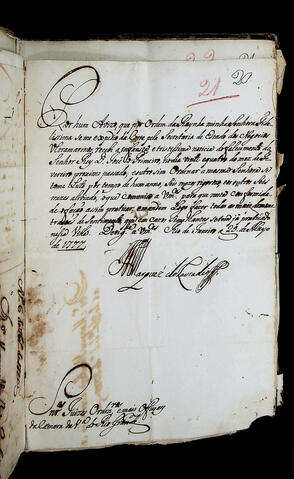 21
20
Por hum Avizo, que por Ordem da Raynha minha Senhora Fide-
lissima se me expedio da Corte pela Secretaria de Estado dos Negocios
Ultramarinos, recebi a infausta, e tristissima noticia do falecimento do
Senhor Rey D. José o Primeiro no dia vinte e quatro do mez de Fe-
vereiro proximo passado; e outro sim Ordenar a mesma Senhora se
tome Luto por tempo de hum anno, seis mezes rigorozo, e os outros seis
mezes aliviado; o qual comunico a Vm.ces para que nesta conformidade
de o fação assim praticar, mandando logo fazer todas as mais demons-
trações de Sentimento, que em cazos Semelhantes se tenhão praticado
nessa Villa. Deos G.e a Vm.ces Rio de Janeiro a 20 de Mayo
de 1777
Marquez do Lavradio
Snr.es Juizes Ordin.ros e mais Officiaes
da Camara da V.a do Rio Grande